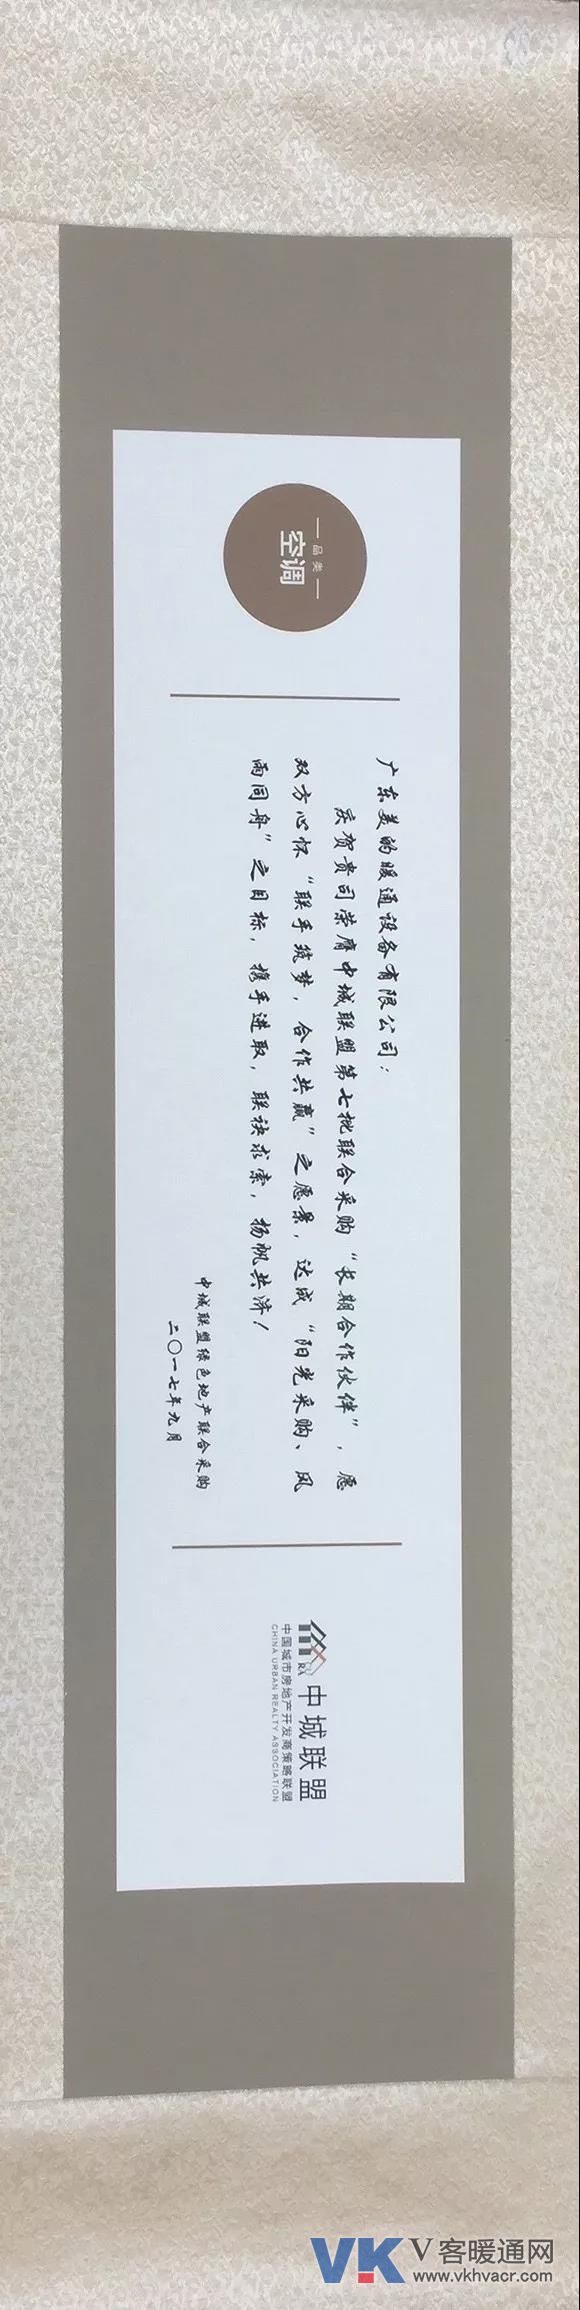 品类
空调
广东美的暖通设备有限公司：
庆贺贵司荣膺中城联盟第七批联合采购“长期合作伙伴”，愿
双方心怀“联手筑梦，合作共赢”之愿景，达成“阳光采购、风
雨同舟”之目标，携手进取，联袂求索，扬帆共济！
中城联盟绿色地产联合采购
二〇一七年九月
CURA
中城联盟
中国城市房地产开发商策略联盟
CHINA URBAN REALTY ASSOCIATION
VK V客暖通网
www.vkhvacr.com